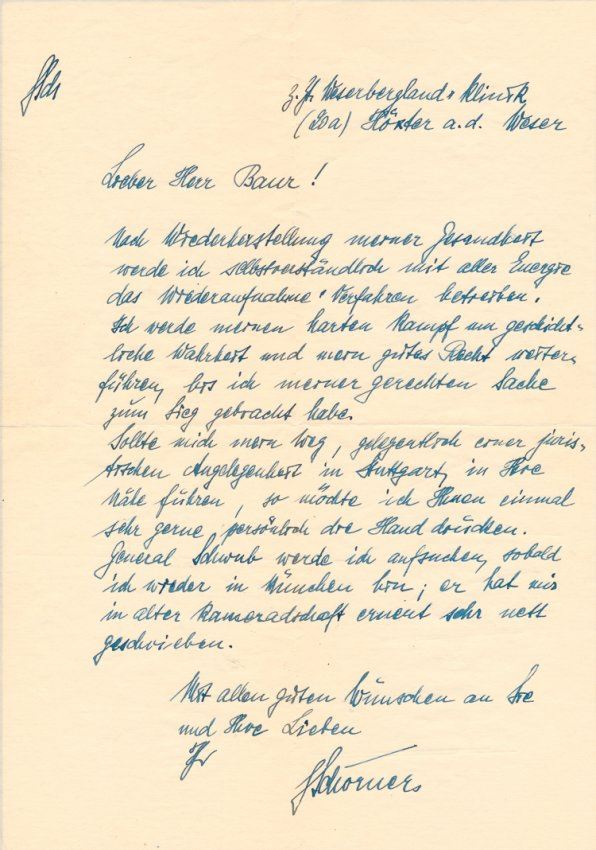 FSch
z. Zt. Weserbergland-Klinik
(20a) Höxter a. d. Weser
Lieber Herr Baur!
Nach Wiederherstellung meiner Gesundheit
werde ich selbstverständlich mit aller Energie
das Wiederaufnahme-Verfahren betreiben.
Ich werde meinen harten Kampf um geschicht-
liche Wahrheit und mein gutes Recht weiter-
führen, bis ich meiner gerechten Sache
zum Sieg gebracht habe.
Sollte mich mein Weg, gelegentlich einer juris-
tischen Angelegenheit in Stuttgart, in Ihre
Nähe führen, so möchte ich Ihnen einmal
sehr gerne persönlich die Hand drücken.
General Schwub werde ich aufsuchen, sobald
ich wieder in München bin; er hat mir
in alter Kameradschaft erneut sehr nett
geschrieben.
Mit allen guten Wünschen an Sie
und Ihre Lieben
Ihr
FSchörner